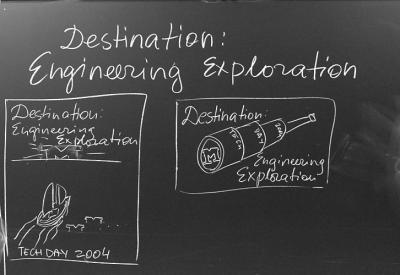 Destination:
Engineering Exploration
Destination:
Engineering
Exploration
M
TECHDAY 2004
Destination:
M
Engineering
Exploration